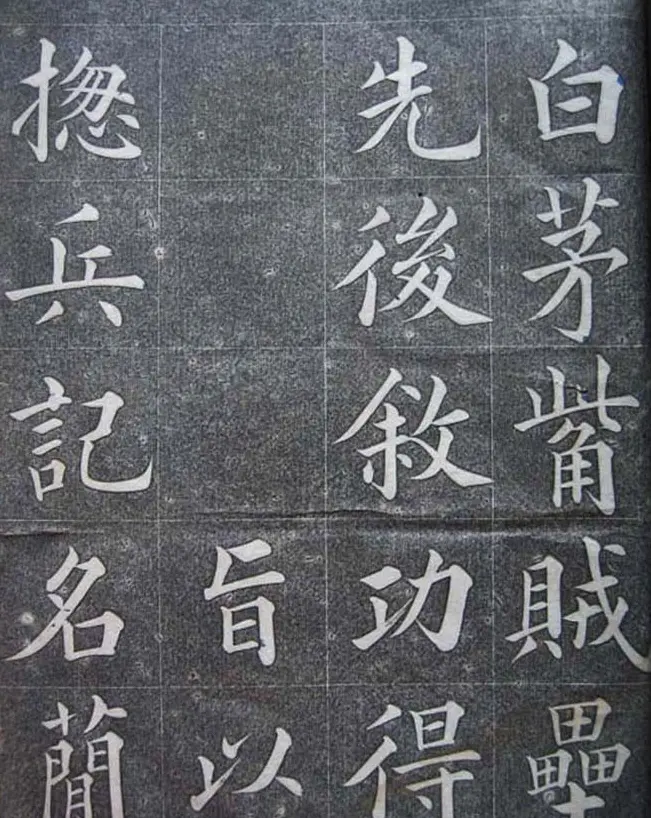 白茅觜賊壘
先後敘功得
旨以
揔兵記名簡